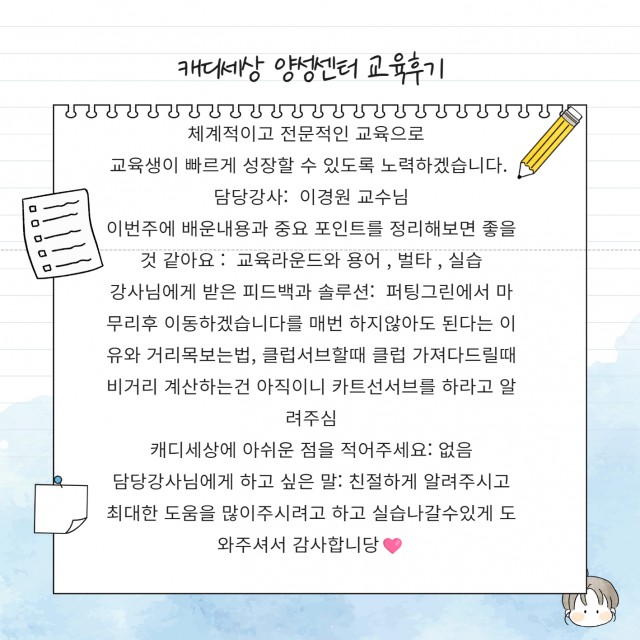 캐디세상 양성센터 교육후기
체계적이고 전문적인 교육으로
교육생이 빠르게 성장할 수 있도록 노력하겠습니다.
담당강사: 이경원 교수님
이번주에 배운내용과 중요 포인트를 정리해보면 좋을
것 같아요 : 교육라운드와 용어 , 벌타 , 실습
강사님에게 받은 피드백과 솔루션: 퍼팅그린에서 마
무리후 이동하겠습니다를 매번 하지않아도 된다는 이
유와 거리목보는법, 클럽서브할때 클럽 가져다드릴때
비거리 계산하는건 아직이니 카트선서브를 하라고 알
려주심
캐디세상에 아쉬운 점을 적어주세요: 없음
담당강사님에게 하고 싶은 말: 친절하게 알려주시고
최대한 도움을 많이주시려고 하고 실습나갈수있게 도
와주셔서 감사합니당💗